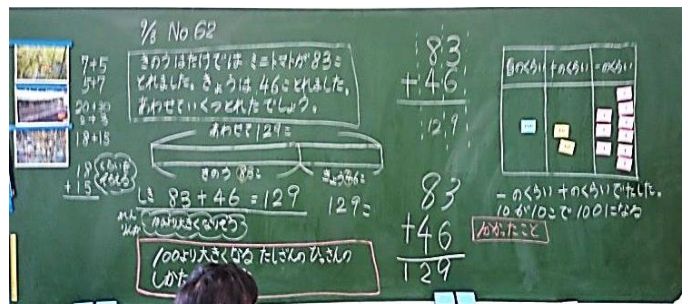 9/8 No 62
7+5
5+7
20+30
18+15
18
+15
きのうはたけでは ミニトマトが83こ
とれました。きょうは 46ことれました。
あわせていくつとれたでしょう。
あわせて129こ
きのう 83こ
きょう46こ
しき 83+46=129
129こ
100より大きくなる たしざんの ひっさんの
しかた
83
+46
129
83
+46
129
百のくらい
十のくらい
一のくらい
一のくらい 十のくらいでたした。
10が10こで100になる
わかったこと